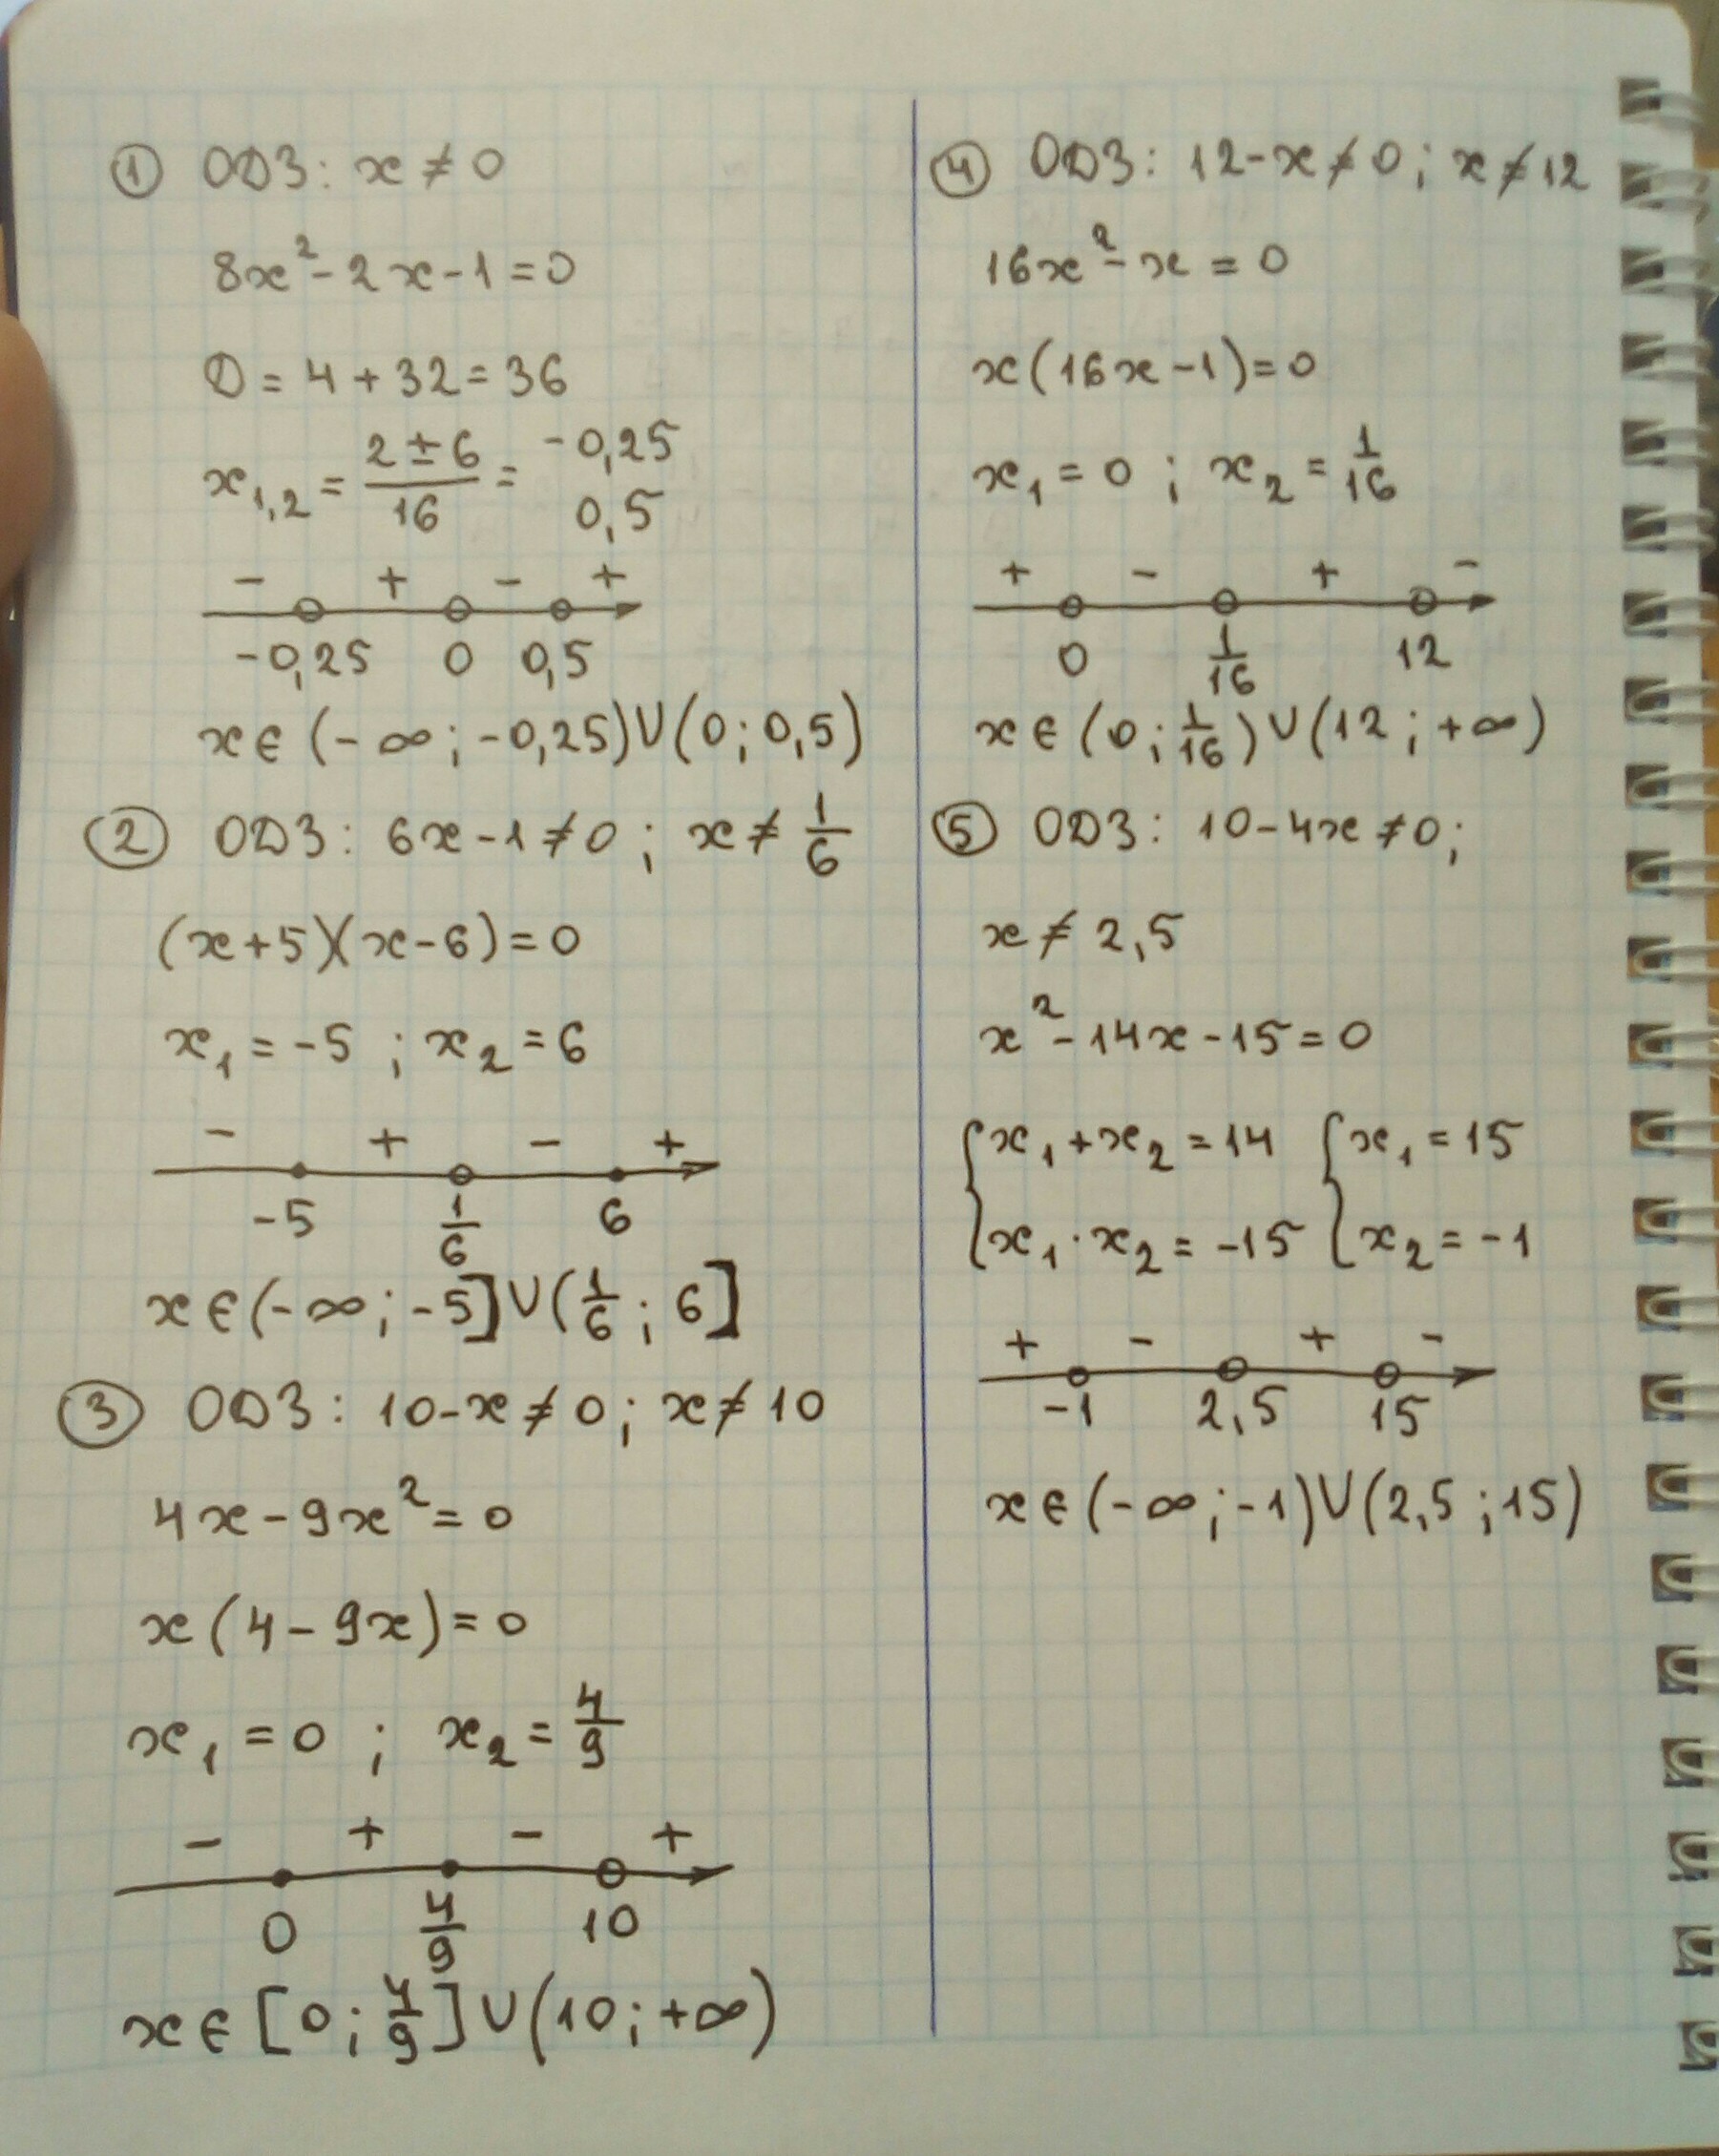 ① ОДЗ: x ≠ 0
8x² - 2x - 1 = 0
D = 4 + 32 = 36
x₁,₂ = (2 ± 6)/16 = -0,25
0,5
- + - +
-0,25 0 0,5
x ∈ (-∞; -0,25) ∪ (0; 0,5)
② ОДЗ: 6x - 1 ≠ 0; x ≠ 1/6
(x+5)(x-6) = 0
x₁ = -5 ; x₂ = 6
- + - +
-5 1/6 6
x ∈ (-∞; -5] ∪ (1/6; 6]
③ ОДЗ: 10 - x ≠ 0; x ≠ 10
4x - 9x² = 0
x(4 - 9x) = 0
x₁ = 0 ; x₂ = 4/9
- + - +
0 4/9 10
x ∈ [0; 4/9] ∪ (10; +∞)
④ ОДЗ: 12 - x ≠ 0; x ≠ 12
16x² - x = 0
x(16x - 1) = 0
x₁ = 0 ; x₂ = 1/16
+ - + -
0 1/16 12
x ∈ (0; 1/16) ∪ (12; +∞)
⑤ ОДЗ: 10 - 4x ≠ 0;
x ≠ 2,5
x² - 14x - 15 = 0
{ x₁ + x₂ = 14 { x₁ = 15
x₁ · x₂ = -15 x₂ = -1
+ - + -
-1 2,5 15
x ∈ (-∞; -1) ∪ (2,5; 15)